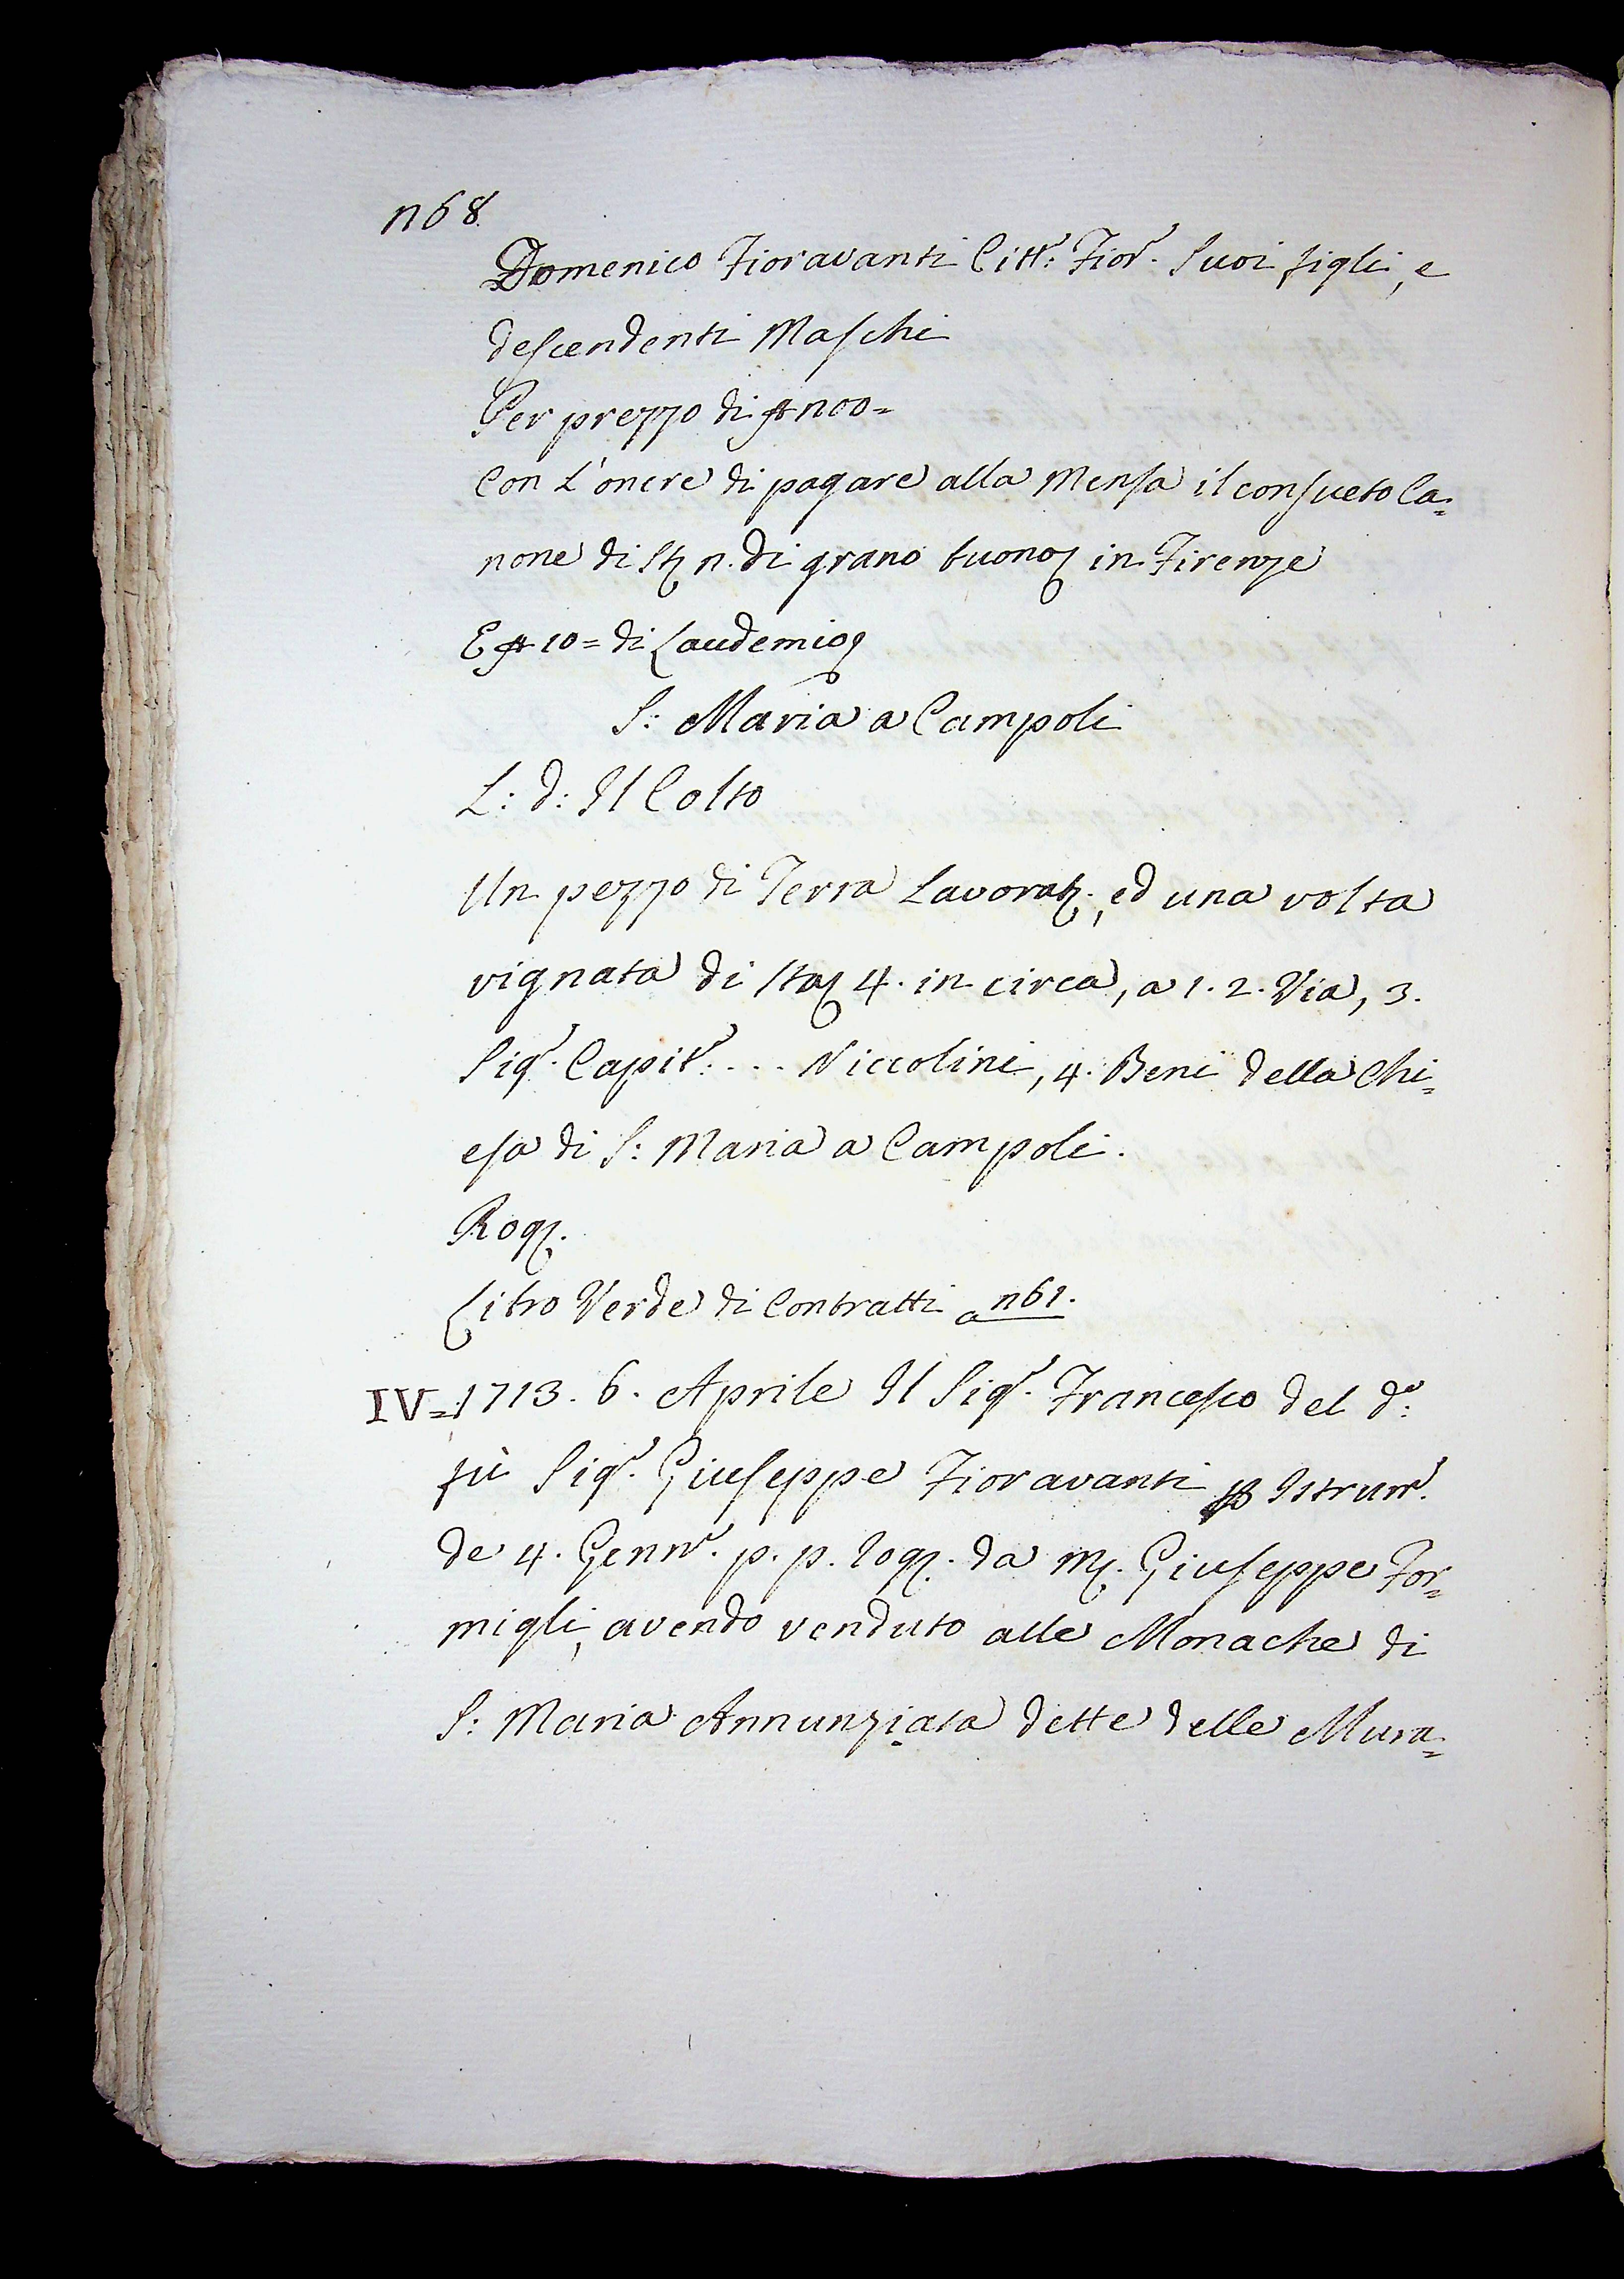 n68.
Domenico Fioravanti Citt.: Fior. Suoi figli, e
descendenti Maschi
Per prezzo di n00=
Con L'onere di pagare alla Mensa il consueto Ca=
none di St. n. di grano buono in Firenze
E 10= di Laudemio
S: Maria a Campoli
L: d: Il Colto
Un pezzo di Terra Lavorat., ed una volta
vignata di sta 4. in circa, a 1. 2. Via, 3.
Sigr. Capit.: ... Niccolini, 4. Beni della Chi=
esa di S: Maria a Campoli.
Rog.
Libro Verde di Contratti a n61.
IV=1713. 6. Aprile Il Sigr. Francesco del do:
fù Sigr. Giuseppe Fioravanti p Istrum.
de 4. Genn. p. p. rog. da M. Giuseppe For=
migli, avendo venduto alle Monache di
S: Maria Annunziata dette delle Mura=